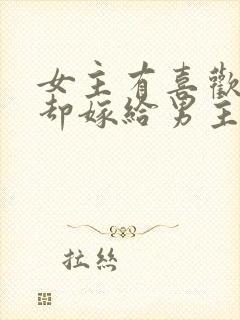 女主有喜歡
却嫁給男主
拉絲